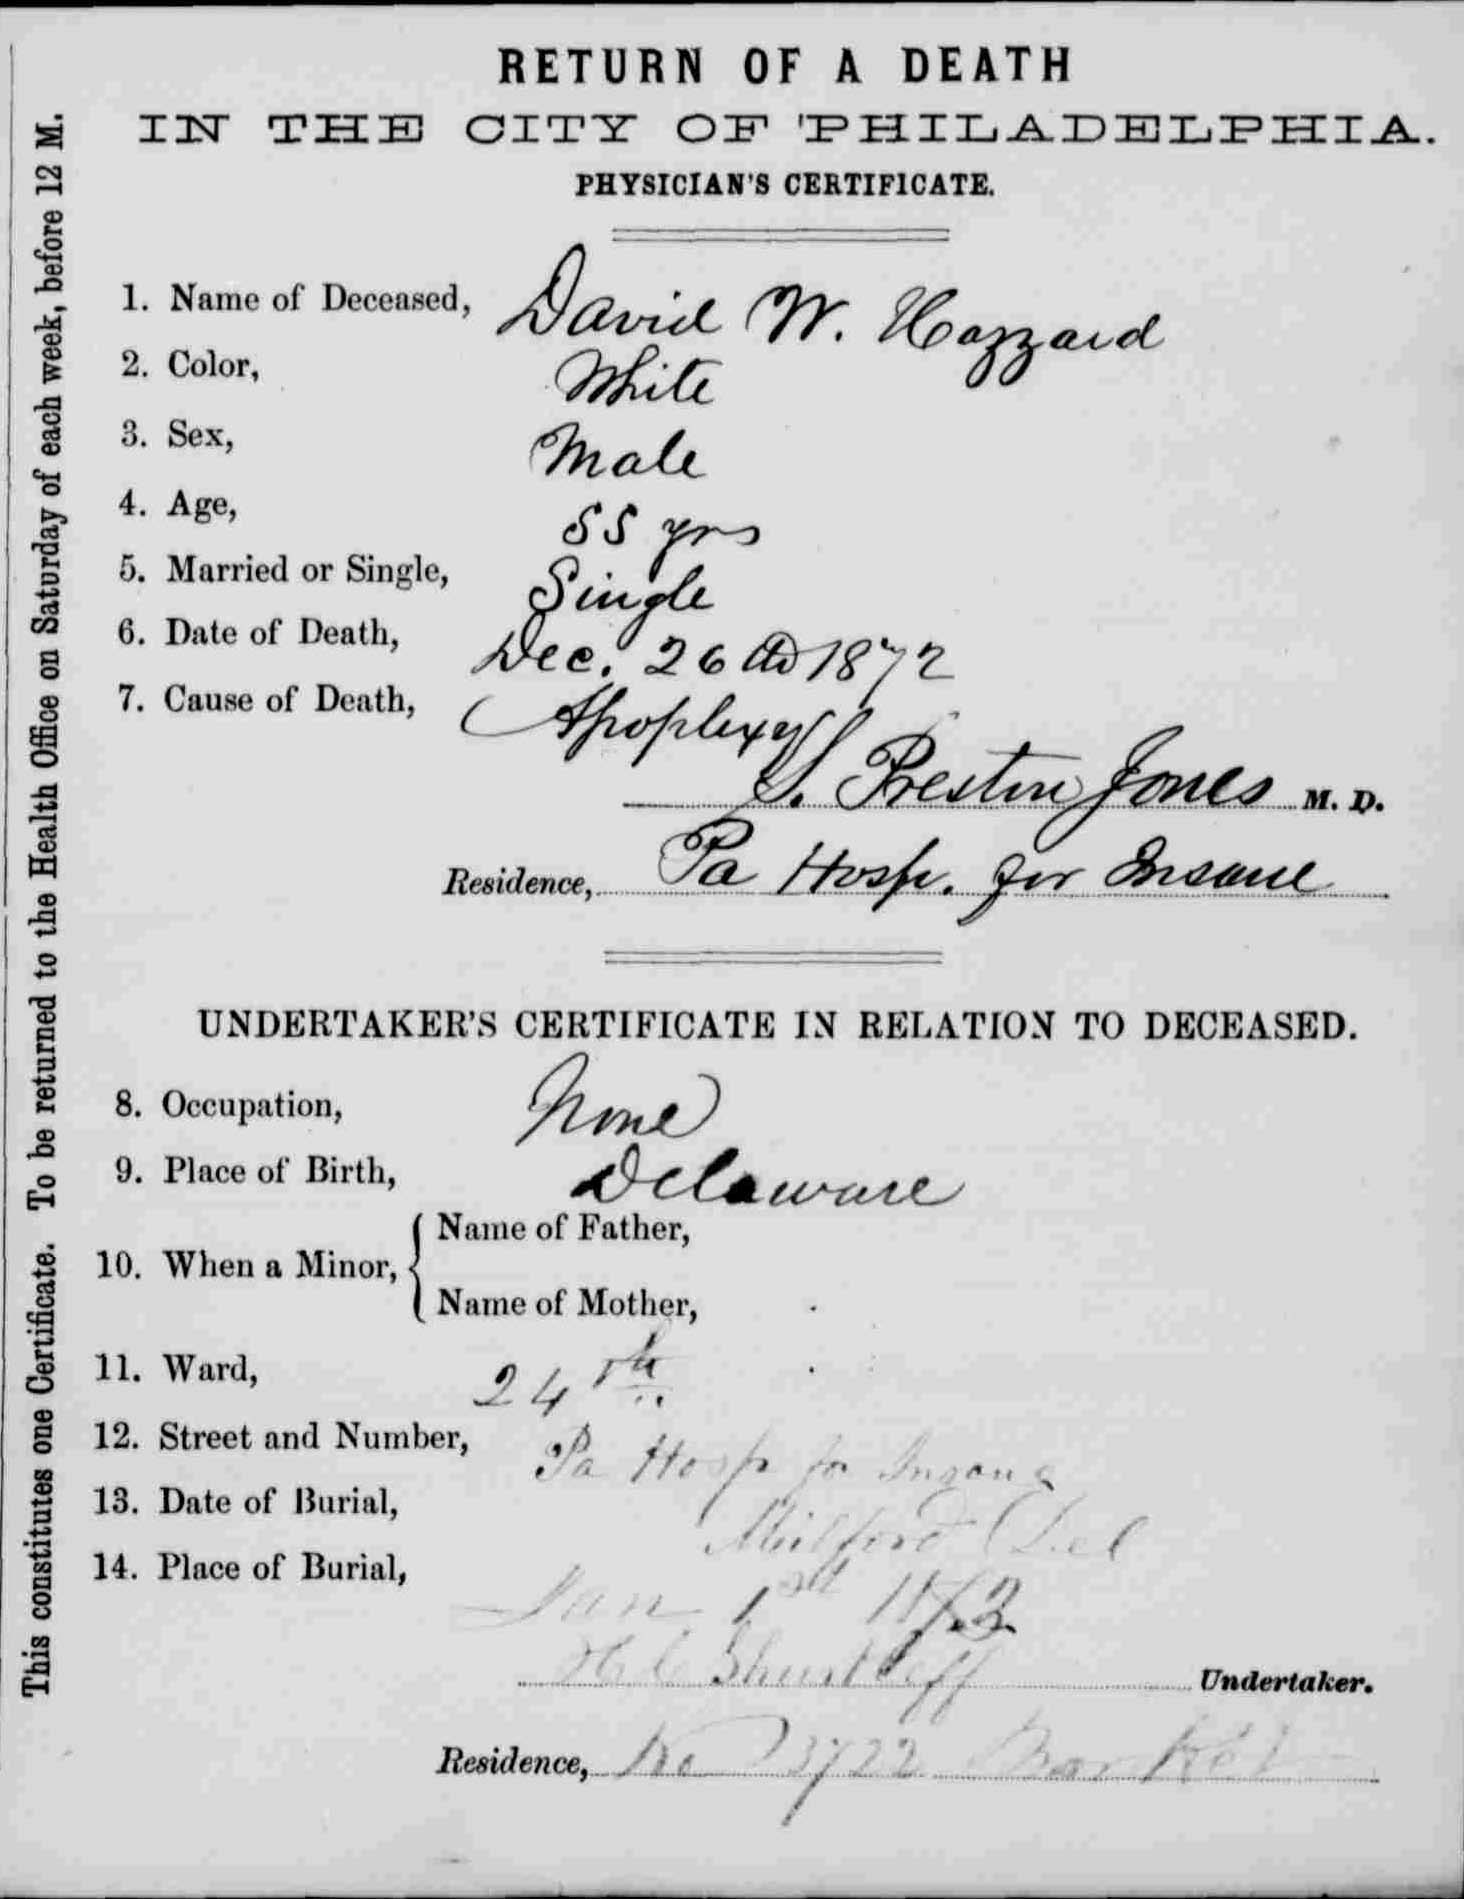 RETURN OF A DEATH
IN THE CITY OF PHILADELPHIA.
PHYSICIAN'S CERTIFICATE.
1. Name of Deceased, David W. Hazzard
2. Color, White
3. Sex, Male
4. Age, 55 yrs
5. Married or Single, Single
6. Date of Death, Dec. 26th 1872
7. Cause of Death, Apoplexy
S. Preston Jones M. D.
Residence, Pa Hosp. for Insane
UNDERTAKER'S CERTIFICATE IN RELATION TO DECEASED.
8. Occupation, None
9. Place of Birth, Delaware
10. When a Minor, { Name of Father,
Name of Mother,
11. Ward, 24th
12. Street and Number, Pa Hosp for Insane
13. Date of Burial, Milford Del
14. Place of Burial, Jan 1st 1873
H C Shurtleff Undertaker.
Residence, No 3722 Market
This constitutes one Certificate. To be returned to the Health Office on Saturday of each week, before 12 M.